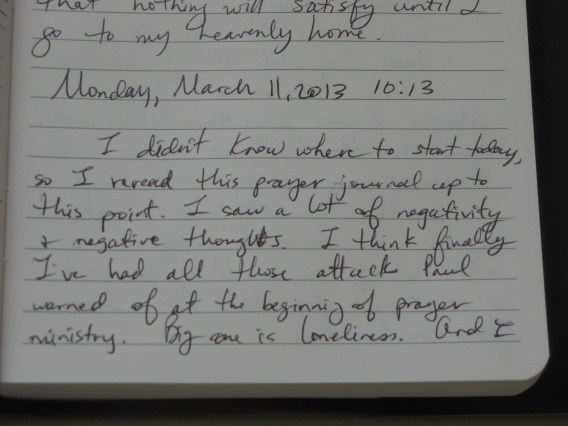 that nothing will satisfy until I
go to my heavenly home.
Monday, March 11, 2013 10:13
I didn't know where to start today,
so I reread this prayer journal up to
this point. I saw a lot of negativity
+ negative thoughts. I think finally
I've had all those attack Paul
warned of at the beginning of prayer
ministry. Big one is loneliness. And I